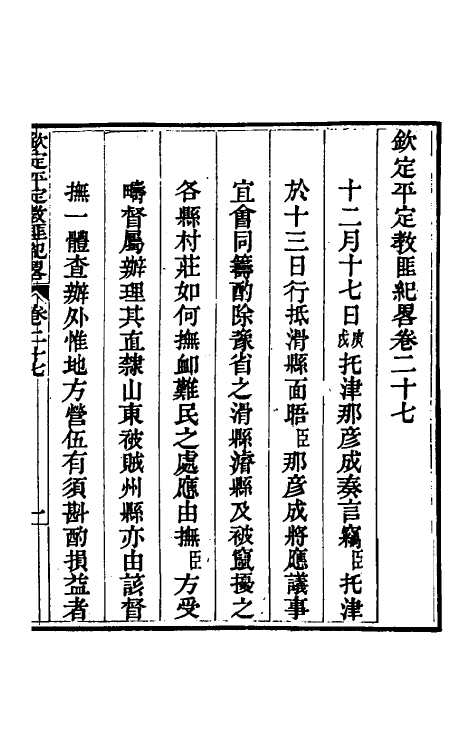 欽定平定教匪紀畧卷二十七
十二月十七日庚戌托津那彦成奏言竊臣托津
於十三日行抵滑縣面晤臣那彦成將應議事
宜會同籌酌除豫省之滑縣濬縣及被竄擾之
各縣村莊如何撫卹難民之處應由撫臣方受
疇督屬辦理其直隸山東被賊州縣亦由該督
撫一體查辦外惟地方營伍有須斟酌損益者
欽定平定教匪紀畧 卷二十七 一